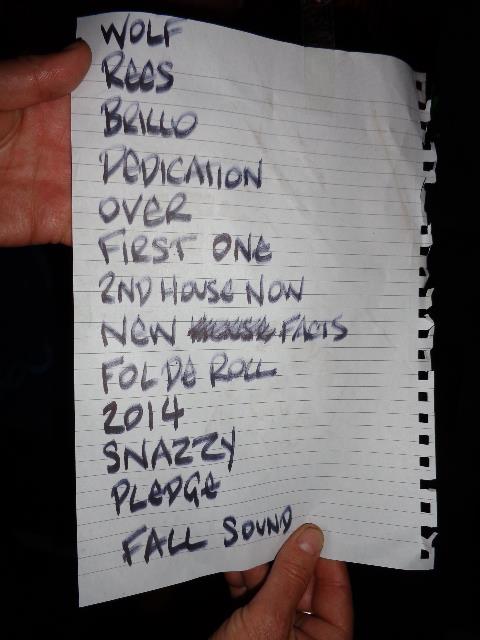 WOLF
REES
BRILLO
DEDICATION
OVER
FIRST ONE
2ND HOUSE NOW
NEW FACTS
FOL DE ROLL
2014
SNAZZY
PLEDGE
FALL SOUND